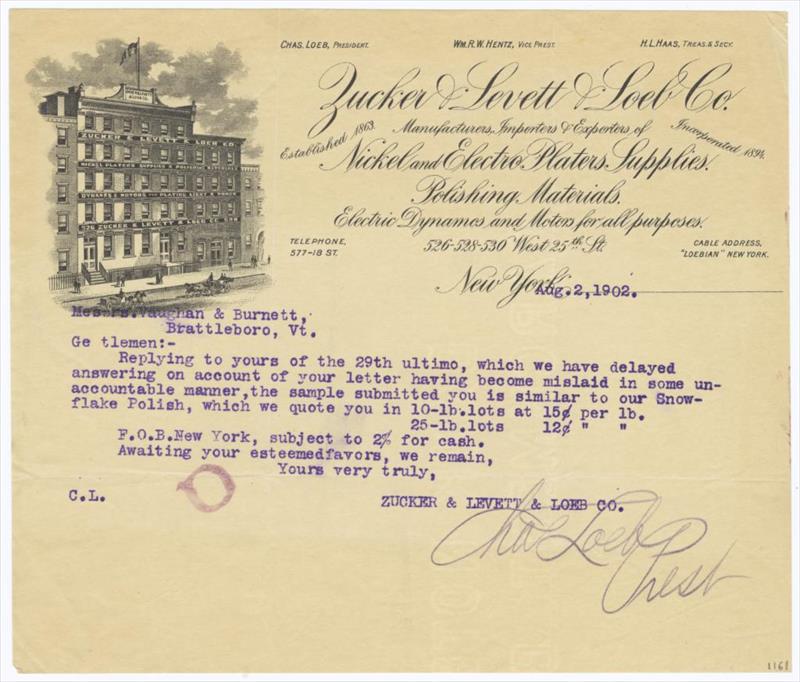 CHAS. LOEB, PRESIDENT. WM. R. W. HENTZ, VICE PREST. H. L. HAAS, TREAS. & SECY.
Zucker & Levett & Loeb Co.
Established 1863. Manufacturers, Importers & Exporters of Incorporated 1894.
Nickel and Electro Platers Supplies.
Polishing Materials.
Electric Dynamos and Motors for all purposes.
TELEPHONE, 577-18 ST. 526-528-530 West 25th St. CABLE ADDRESS, "LOEBIAN" NEW YORK.
New York, Aug. 2, 1902.
ZUCKER & LEVETT & LOEB CO.
NICKEL PLATERS SUPPLIES & POLISHING
DYNAMOS & MOTORS FOR PLATING
526 ZUCKER & LEVETT & LOEB CO.
Messrs. Vaughan & Burnett,
Brattleboro, Vt.
Ge tlemen:-
Replying to yours of the 29th ultimo, which we have delayed
answering on account of your letter having become mislaid in some un-
accountable manner, the sample submitted you is similar to our Snow-
flake Polish, which we quote you in 10-lb. lots at 15¢ per lb.
25-lb. lots 12¢ " "
F.O.B. New York, subject to 2% for cash.
Awaiting your esteemedfavors, we remain,
Yours very truly,
C.L. ZUCKER & LEVETT & LOEB CO.
Chas Loeb
Prest
1161